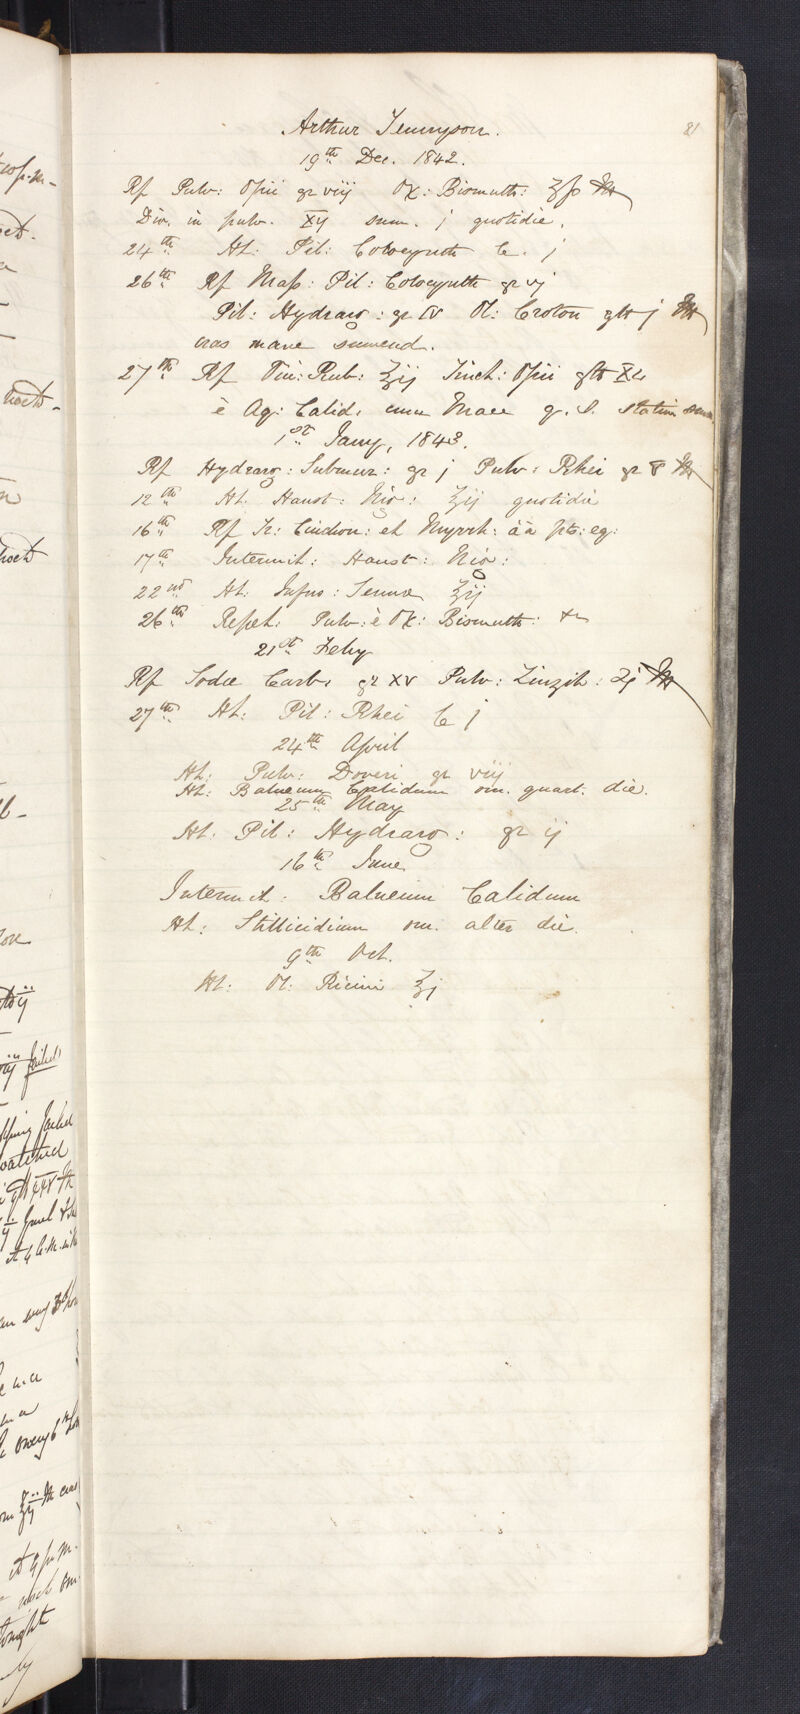 81
Arthur Tennyson.
19th Dec. 1842.
Rx Pulv: Opii gr viij Ox: Bismuth: ʒss M
Div. in pulv. XIJ sum. j quotidie.
24th Ht: Pil: Colocynth C. j
26th Rx Mass: Pil: Colocynth gr vj
Pil: Hydrarg: gr IV Ol: Croton gtt j M
cras mane sumend.
27th Rx Vin: Rub: ℥ij Tinct: Opii gtt XL
è Aq: Calid: cum Mace q. S. statim sum
1st Jany, 1843.
Rx Hydrarg: Submur: gr j Pulv: Rhei gr V M
12th Ht. Haust: Nig: ℥ij quotidie
16th Rx Tr: Cinchon: et Myrrh: āā pts: eg:
17th Intermit: Haust: Nig:
22nd Ht: Infus: Sennæ ℥ij
26th Repet: Pulv: è Ox: Bismuth: &c
21st Feby
Rx Sodæ Carb: gr XV Pulv: Zinzib: ʒj M
27th Ht: Pil: Rhei C j
24th April
Ht: Pulv: Doveri gr viij
Ht: Balneum Calidum om. quart. die.
25th May
Ht: Pil: Hydrarg: gr ij
16th June
Intermit: Balneum Calidum
Ht: Stillicidium om. alter die.
9th Oct.
Ht: Ol: Ricini ℥j